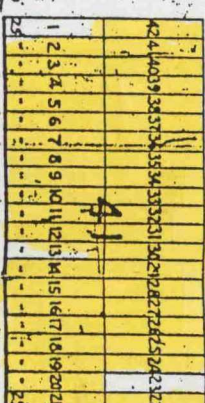 42 41 40 39 38 37 36 35 34 33 32 31 30 29 28 27 26 25 24 23
41
1 2 3 4 5 6 7 8 9 10 11 12 13 14 15 16 17 18 19 20
25